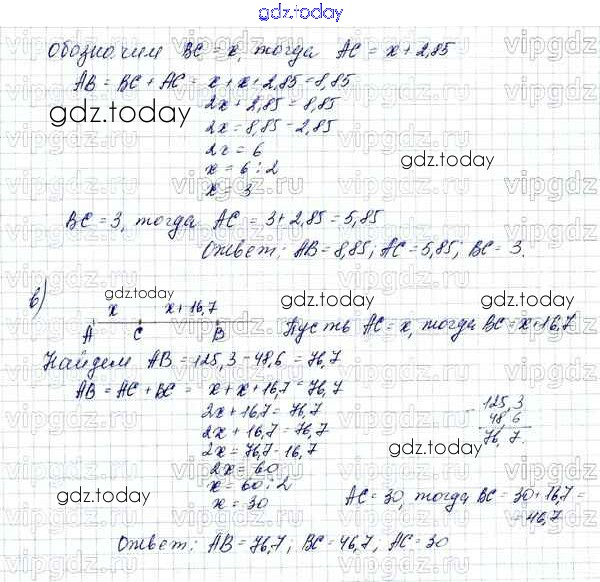 gdz.today
Обозначим BC = x, тогда AC = x + 2,85
AB = BC + AC = x + x + 2,85 = 8,85
2x + 2,85 = 8,85
2x = 8,85 - 2,85
2x = 6
x = 6 : 2
x = 3
BC = 3, тогда AC = 3 + 2,85 = 5,85
Ответ: AB = 8,85; AC = 5,85; BC = 3.
в)
x x + 16,7
A C B Пусть AC = x, тогда BC = x + 16,7
Найдем AB = 125,3 - 48,6 = 76,7
AB = AC + BC = x + x + 16,7 = 76,7
2x + 16,7 = 76,7
2x + 16,7 = 76,7
2x = 76,7 - 16,7
2x = 60
x = 60 : 2
x = 30
- 125,3
48,6
76,7.
AC = 30, тогда BC = 30 + 16,7 =
= 46,7
Ответ: AB = 76,7; BC = 46,7; AC = 30
gdz.today
gdz.today
gdz.today
gdz.today
gdz.today
gdz.today
gdz.today
vipgdz.ru